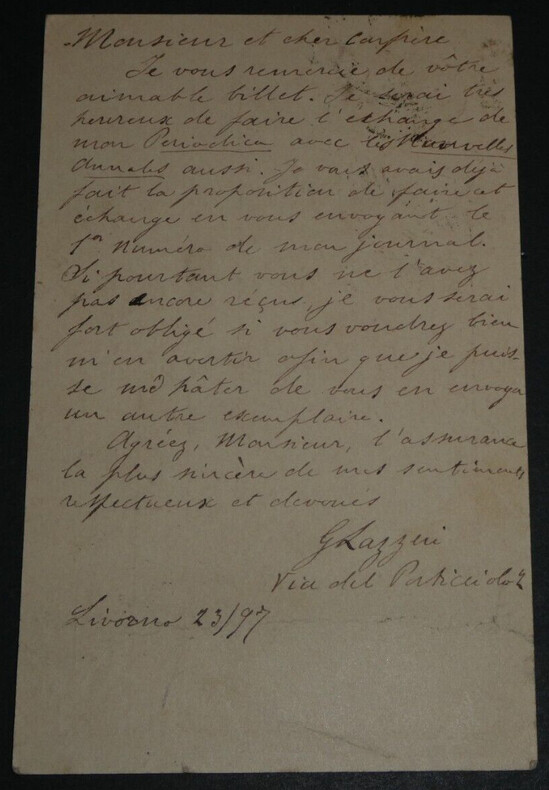 Monsieur et cher Confrère
Je vous remercie de vôtre
aimable billet. Je serai très
heureux de faire l'échange de
mon Periodico avec les Nouvelles
Annales aussi. Je vous avais déjà
fait la proposition de faire cet
échange en vous envoyant le
1er numéro de mon journal.
Si pourtant vous ne l'avez
pas encore reçus, je vous serai
fort obligé si vous voudrez bien
m'en avertir afin que je puis-
se me hâter de vous en envoyer
un autre exemplaire.
Agréez, Monsieur, l'assurance
la plus sincère de mes sentiments
respectueux et devoués
G Lazzeri
Via del
Livorno 23/97